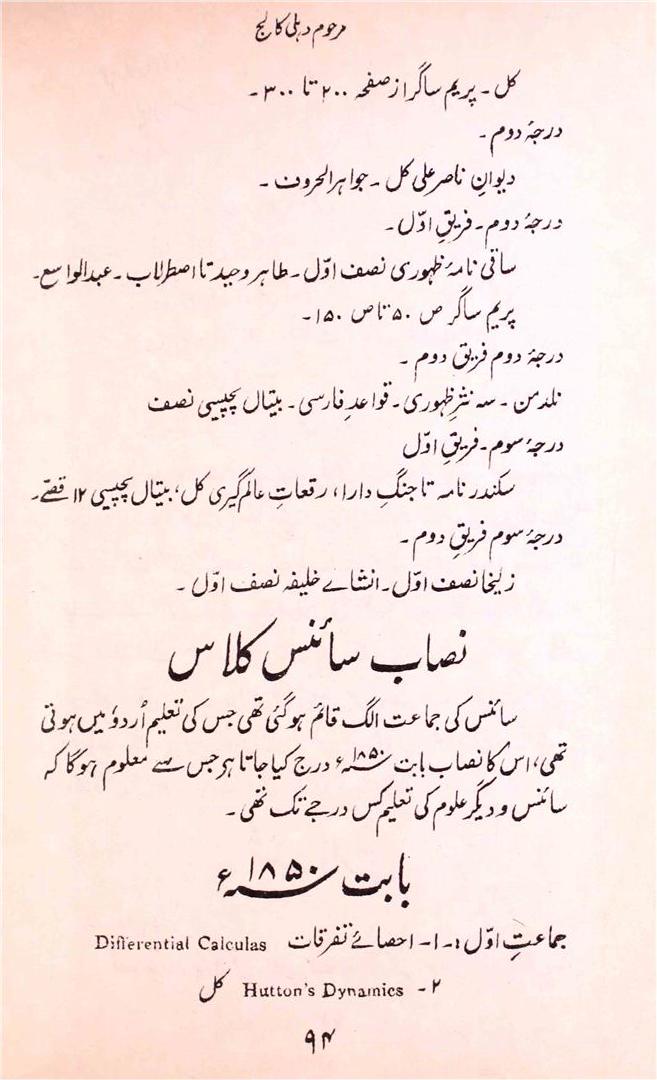 مرحوم دہلی کالج
کل ۔ پریم ساگر از صفحہ ۲۰۰ تا ۳۰۰ ۔
درجۂ دوم ۔
دیوانِ ناصر علی کل ۔ جواہر الحروف ۔
درجۂ دوم ۔ فریقِ اوّل ۔
ساقی نامۂ ظہوری نصف اوّل ۔ طاہر وحید تا اصطرلاب ۔ عبدالواسع ۔
پریم ساگر ص ۵۰ تا ص ۱۵۰ ۔
درجۂ دوم فریق دوم ۔
نلدمن ۔ سہ نثرِ ظہوری ۔ قواعدِ فارسی ۔ بیتال پچیسی نصف
درجۂ سوم ۔ فریقِ اوّل
سکندر نامہ تا جنگِ دارا، رقعاتِ عالم گیری کل، بیتال پچیسی ۱۲ قصّے ۔
درجۂ سوم فریقِ دوم ۔
زلیخا نصف اوّل ۔ انشائے خلیفہ نصف اوّل ۔
نصاب سائنس کلاس
سائنس کی جماعت الگ قائم ہوگئی تھی جس کی تعلیم اُردو میں ہوتی
تھی، اس کا نصاب بابت ۱۸۵۰ء درج کیا جاتا ہر جس سے معلوم ہوگا کہ
سائنس و دیگر علوم کی تعلیم کس درجے تک تھی ۔
بابت ۱۸۵۰ء
جماعتِ اوّل :۔ ۱۔ احصائے تفرقات Differential Calculas
۲ ۔ Hutton's Dynamics کل
۹۴